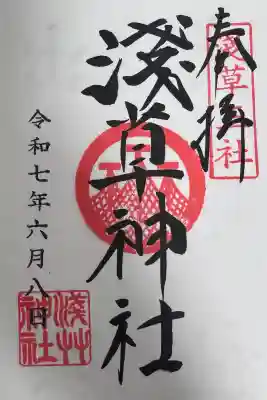 奉拝
浅草神社
淺草神社
令和七年六月八日
淺艸神社